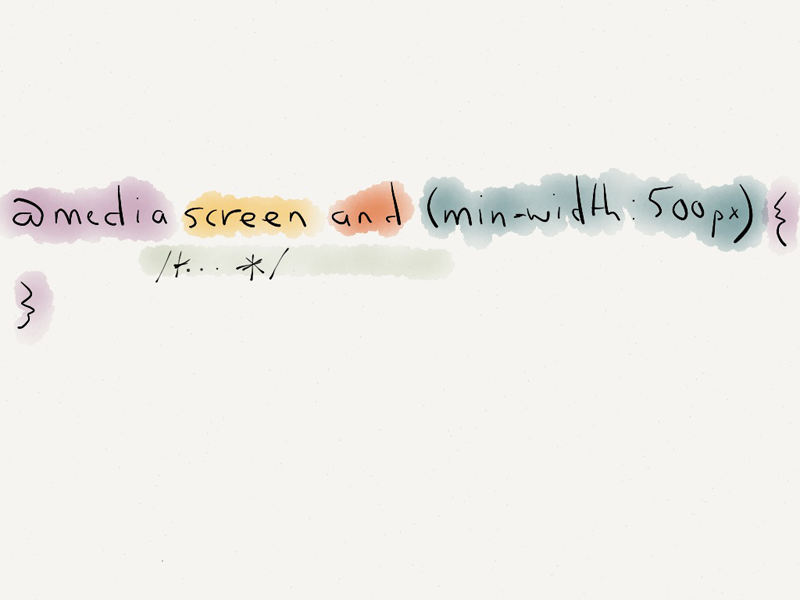 @media screen and (min-width: 500px) {
/*... */
}